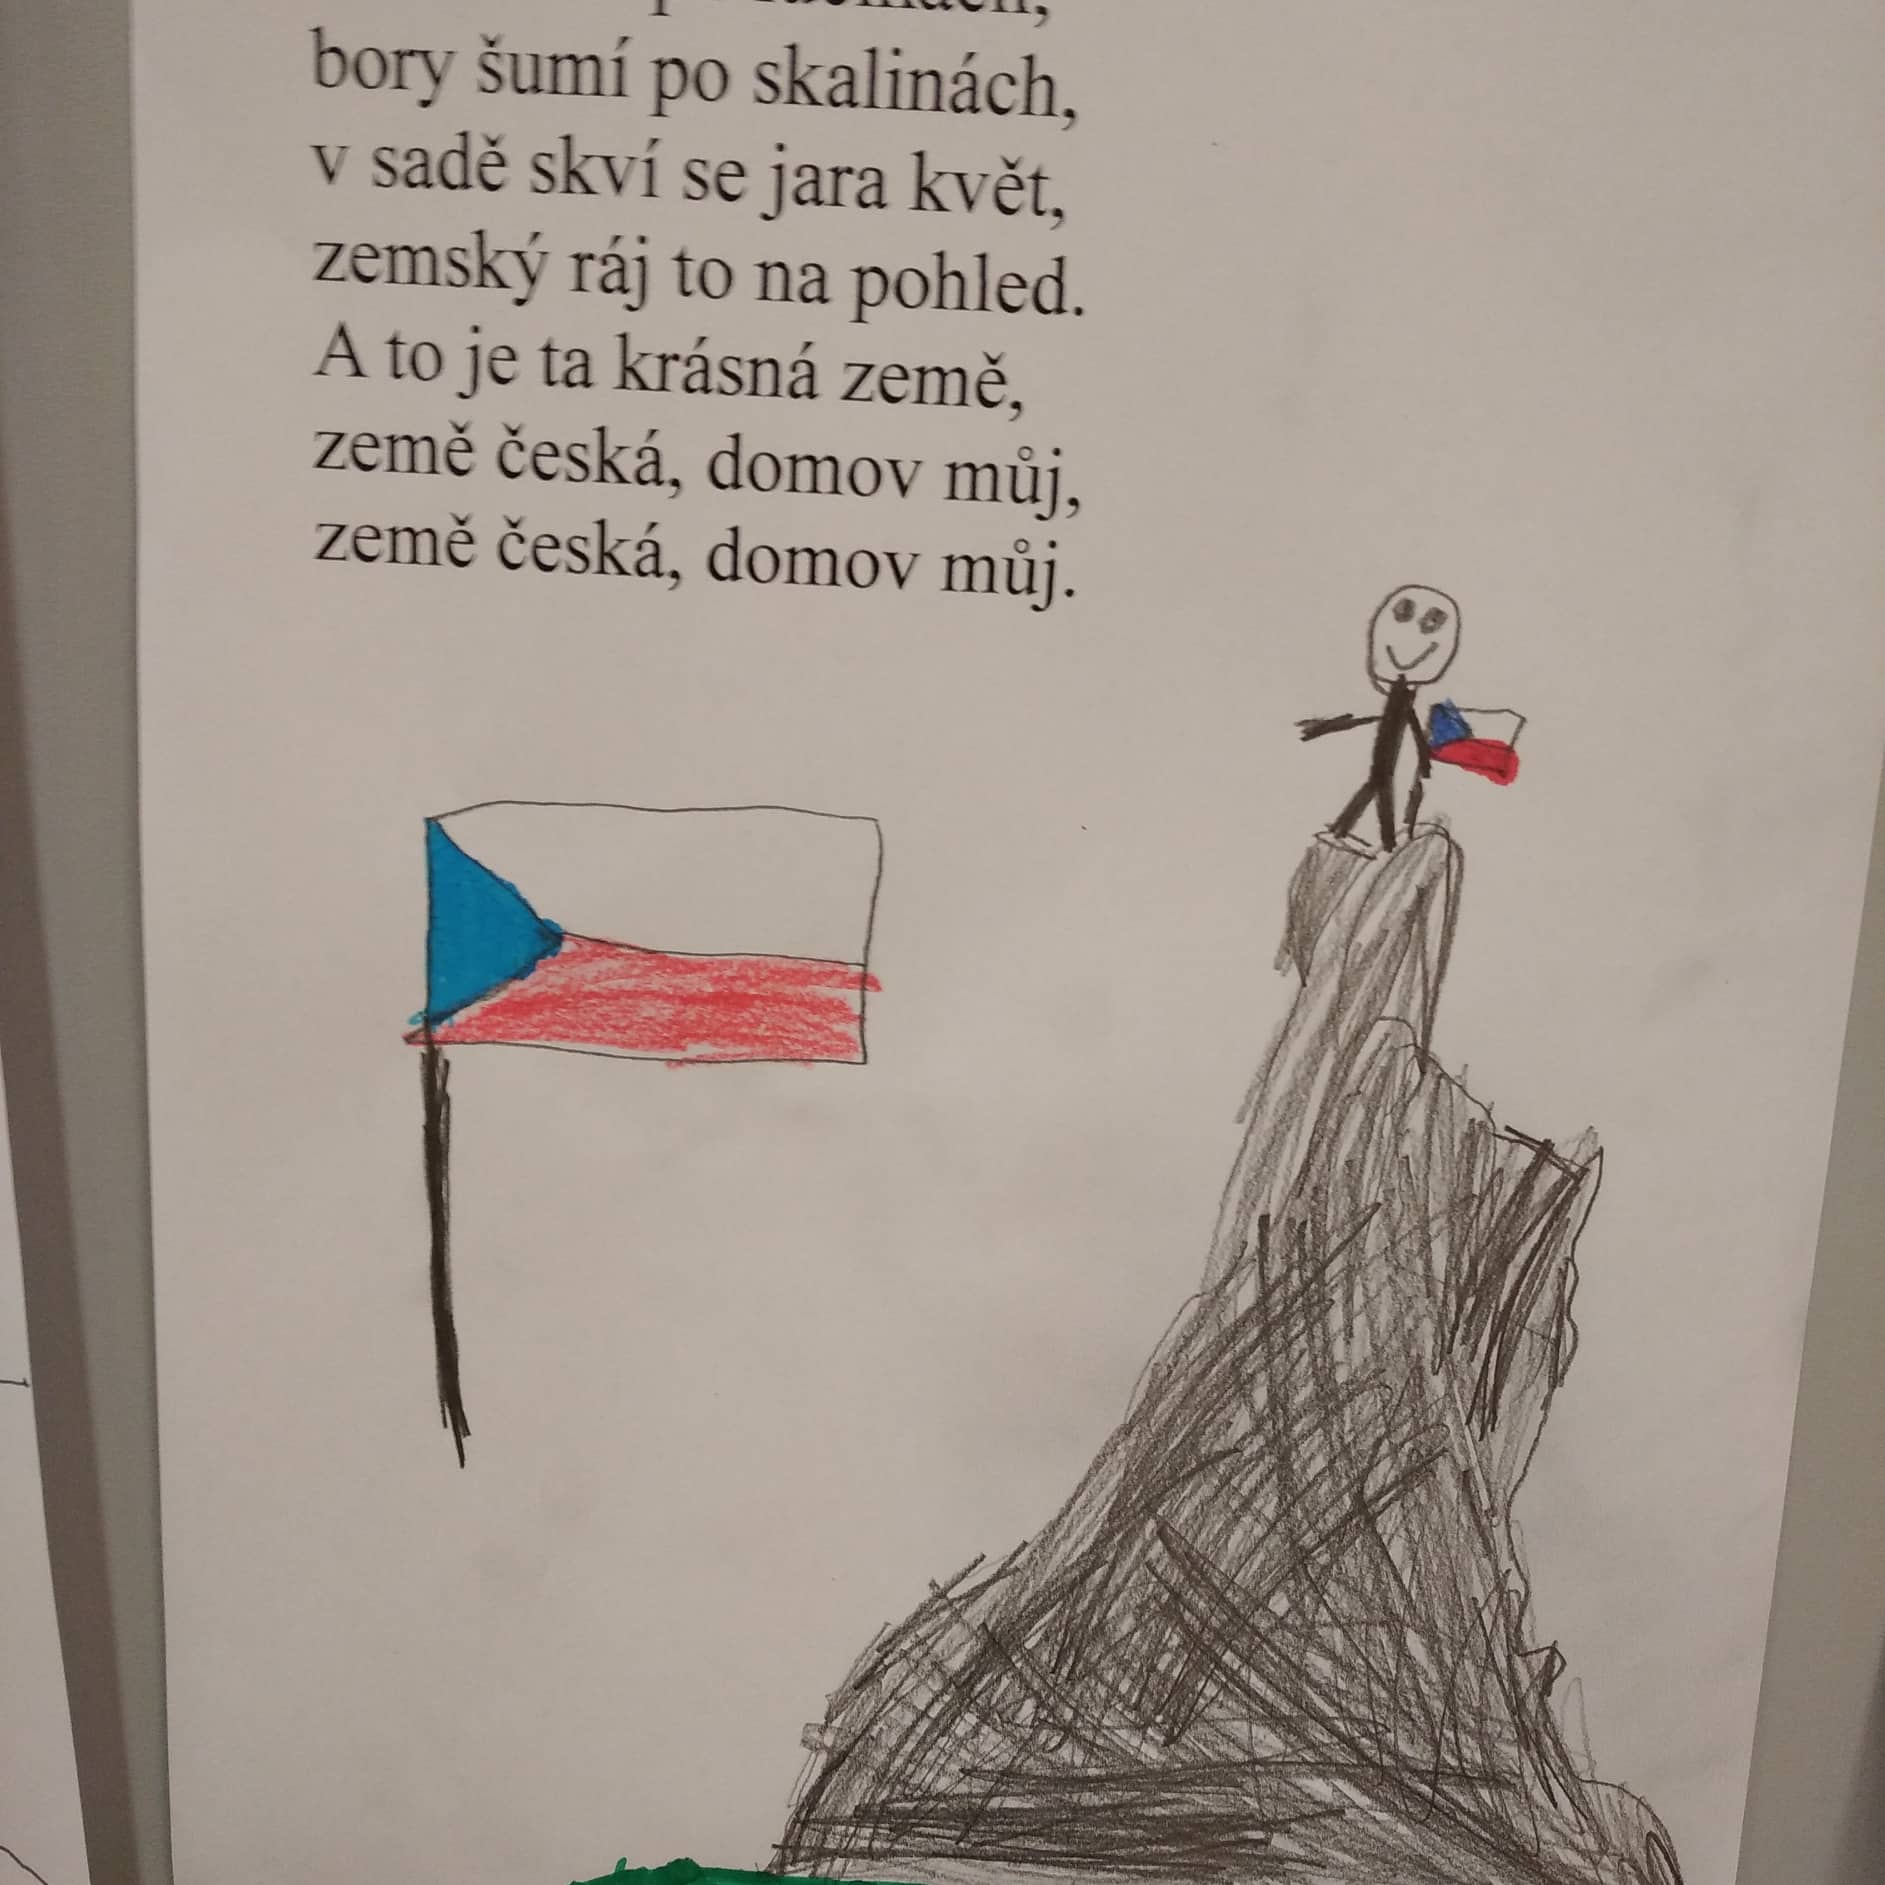 bory šumí po skalinách,
v sadě skví se jara květ,
zemský ráj to na pohled.
A to je ta krásná země,
země česká, domov můj,
země česká, domov můj.